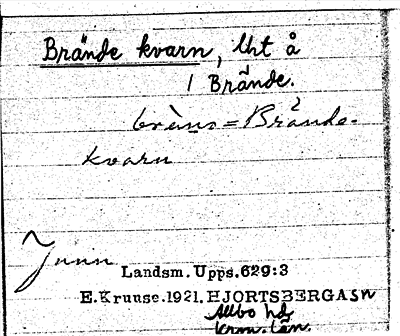 Brände kvarn, lht å
1 Brände.
Brände-
kvarn
Landsm. Upps. 629:3
E. Kruuse. 1921. HJORTSBERGA sn
Allbo hd
Kron. län.